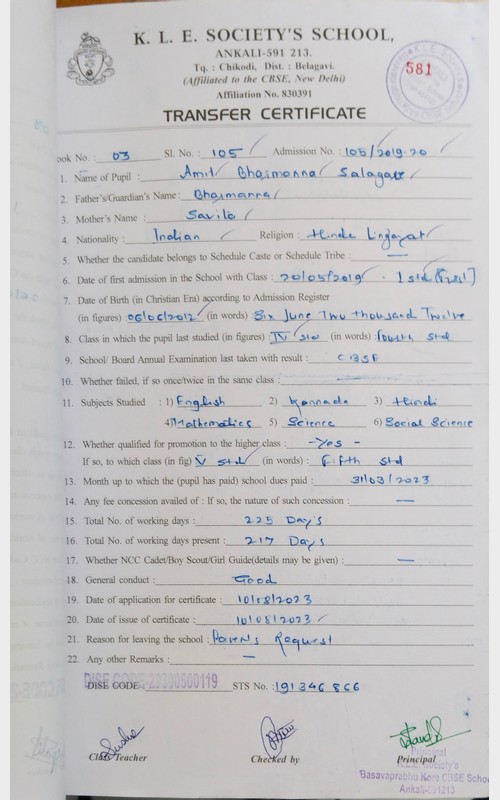 K. L. E. SOCIETY'S SCHOOL,
ANKALI-591 213.
Tq. : Chikodi, Dist. : Belagavi.
(Affiliated to the CBSE, New Delhi)
Affiliation No. 830391
581
TRANSFER CERTIFICATE
ook No. : 03 Sl. No. : 105 Admission No. : 105/2019-20
1. Name of Pupil : Amit Bhaimanna Salagare
2. Father's/Guardian's Name : Bhaimanna
3. Mother's Name : Savita
4. Nationality : Indian Religion : Hindu Lingayat
5. Whether the candidate belongs to Schedule Caste or Schedule Tribe : —
6. Date of first admission in the School with Class : 20/05/2019 - I std (First)
7. Date of Birth (in Christian Era) according to Admission Register
(in figures) 06/06/2012 (in words) Six June Two thousand Twelve
8. Class in which the pupil last studied (in figures) IV std (in words) : Fourth std
9. School/ Board Annual Examination last taken with result : CBSE
10. Whether failed, if so once/twice in the same class : —
11. Subjects Studied : 1) English 2) Kannada 3) Hindi
4) Mathematics 5) Science 6) Social Science
12. Whether qualified for promotion to the higher class : -Yes-
If so, to which class (in fig) V std (in words) : Fifth std
13. Month up to which the (pupil has paid) school dues paid : 31/03/2023
14. Any fee concession availed of : If so, the nature of such concession : —
15. Total No. of working days : 225 Days
16. Total No. of working days present : 217 Days
17. Whether NCC Cadet/Boy Scout/Girl Guide(details may be given) : —
18. General conduct : Good
19. Date of application for certificate : 10/08/2023
20. Date of issue of certificate : 10/08/2023
21. Reason for leaving the school : Parents Request
22. Any other Remarks : —
DISE CODE : STS No. : 191346866
Class Teacher Checked by Principal
Principal
K.L.E. Society's
Basavaprabhu Kore CBSE School
Ankali-591213